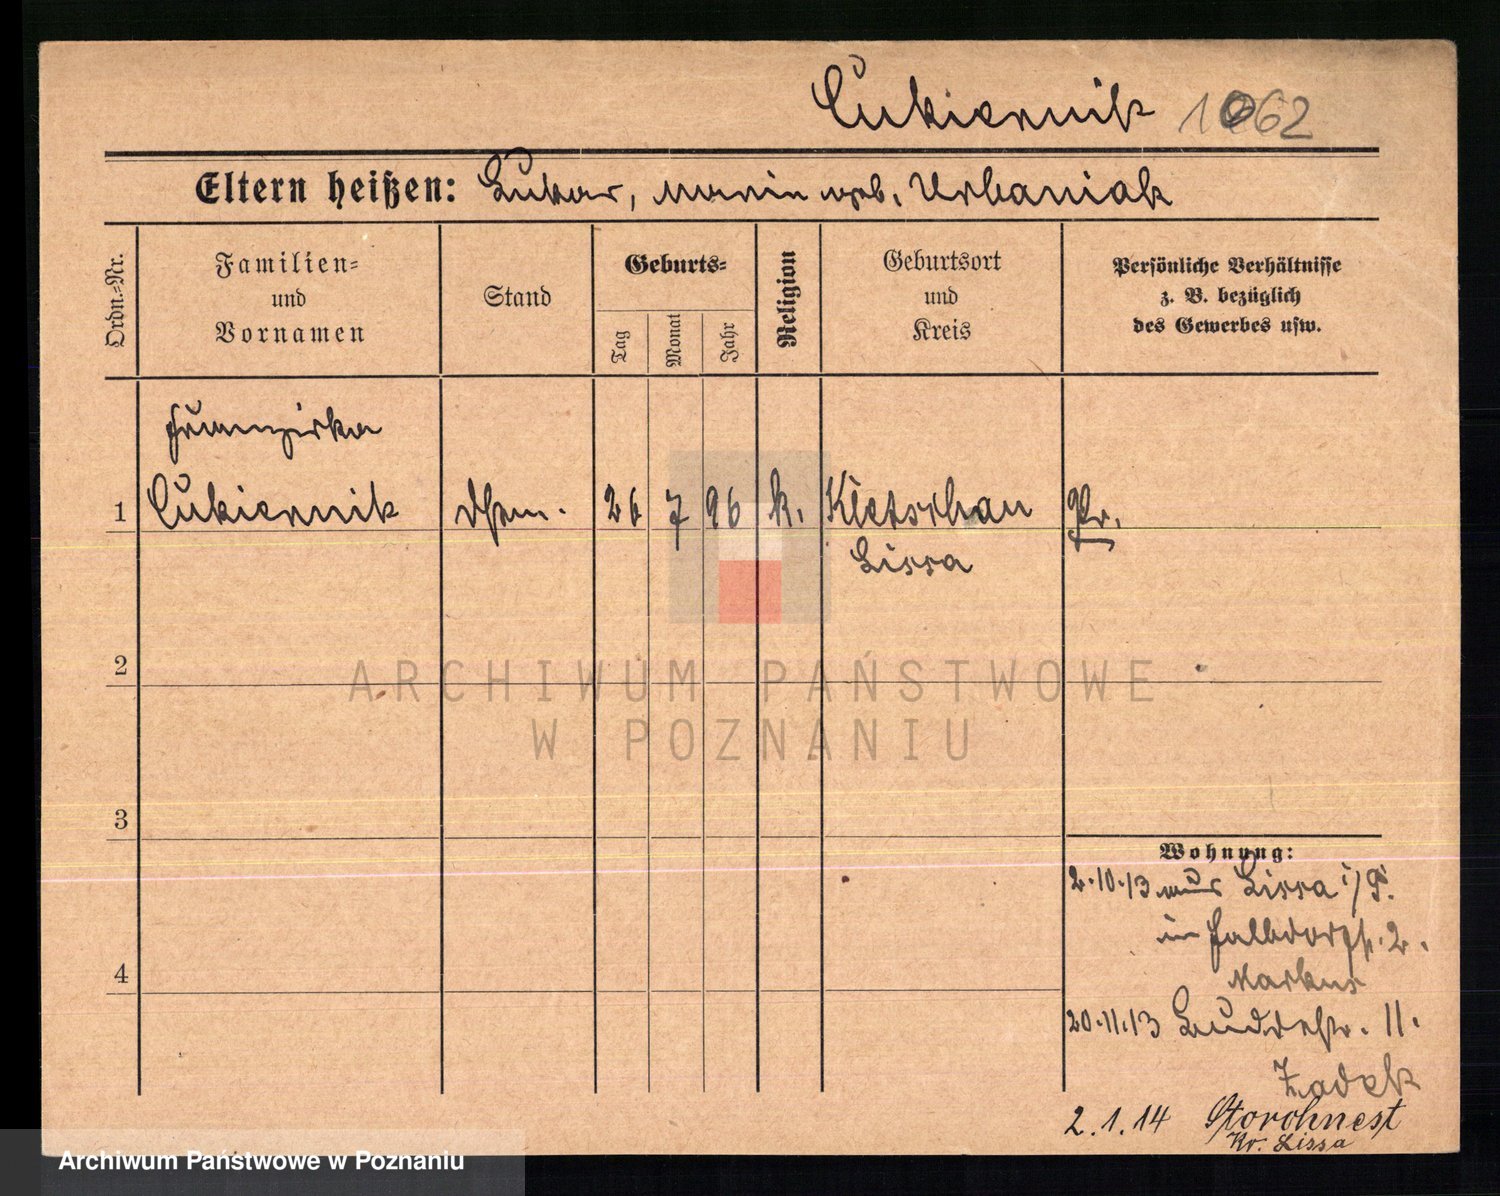 Cukiernik 1062
Eltern heißen: Lukas, Maria geb. Urbaniak
Ordn.-Nr.
Familien-
und
Vornamen
Stand
Geburts-
Tag
Monat
Jahr
Religion
Geburtsort
und
Kreis
Persönliche Verhältnisse
z. B. bezüglich
des Gewerbes usw.
Franziska
1 Cukiernik 26 7 96 k. Kletschau Pr.
Lissa
2
ARCHIWUM PAŃSTWOWE
W POZNANIU
3
4
Wohnung:
2.10.13 aus Lissa i/P.
in 2.
Markus
20.11.13 11.
Zadek
2.1.14 Storchnest
Kr. Lissa
Archiwum Państwowe w Poznaniu